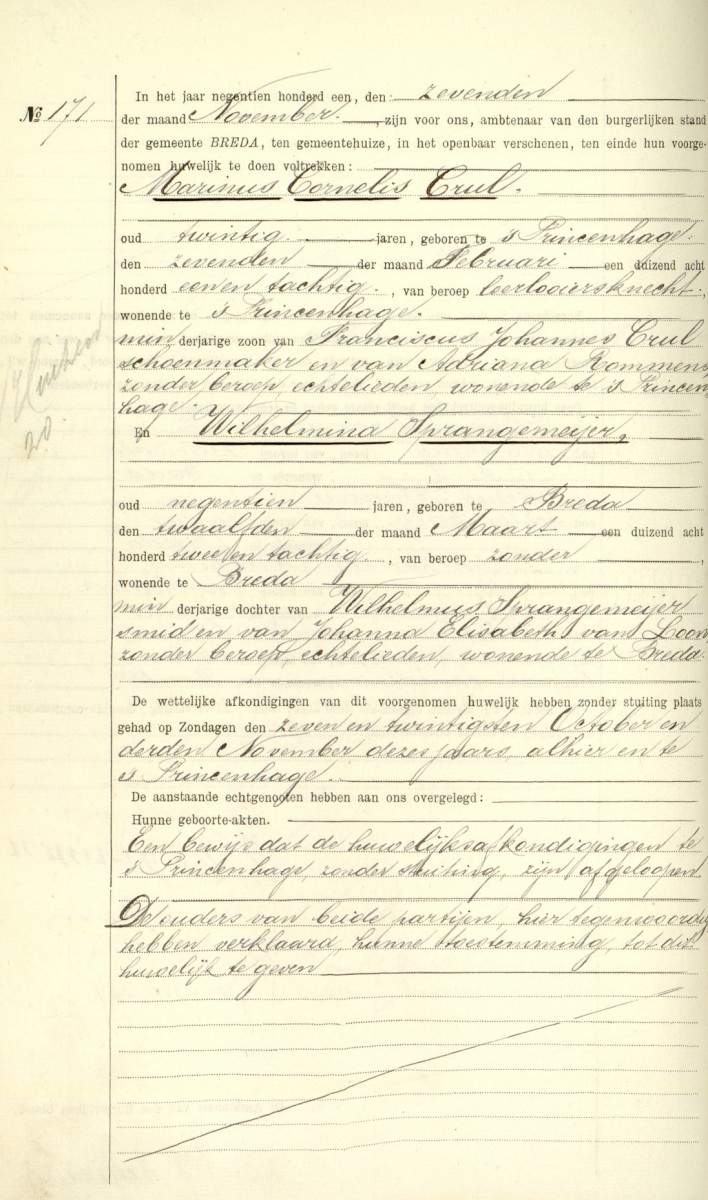 No 171
In het jaar negentien honderd een, den zevenden
der maand November, zijn voor ons, ambtenaar van den burgerlijken stand
der gemeente BREDA, ten gemeentehuize, in het openbaar verschenen, ten einde hun voorge-
nomen huwelijk te doen voltrekken:
Marinus Cornelis Crul.
oud twintig jaren, geboren te 's Princenhage.
den zevenden der maand Februari een duizend acht
honderd een en tachtig, van beroep leerlooiersknecht,
wonende te 's Princenhage.
min derjarige zoon van Franciscus Johannes Crul
schoenmaker en van Adriana Rommens,
zonder beroep, echtelieden, wonende te 's Princen
hage.
20
En Wilhelmina Sprangemeijer,
oud negentien jaren, geboren te Breda
den twaalfden der maand Maart een duizend acht
honderd twee en tachtig, van beroep zonder,
wonende te Breda
min derjarige dochter van Wilhelmus Sprangemeijer
smid en van Johanna Elisabeth van Loon,
zonder beroep, echtelieden, wonende te Breda.
De wettelijke afkondigingen van dit voorgenomen huwelijk hebben zonder stuiting plaats
gehad op Zondagen den zeven en twintigsten October en
derden November dezes jaars, alhier en te
's Princenhage.
De aanstaande echtgenooten hebben aan ons overgelegd:
Hunne geboorte-akten.
Een bewijs dat de huwelijksafkondigingen te
's Princenhage, zonder stuiting, zijn afgeloopen.
De ouders van beide partijen, hier tegenwoordig
hebben verklaard, hunne toestemming, tot dit
huwelijk te geven